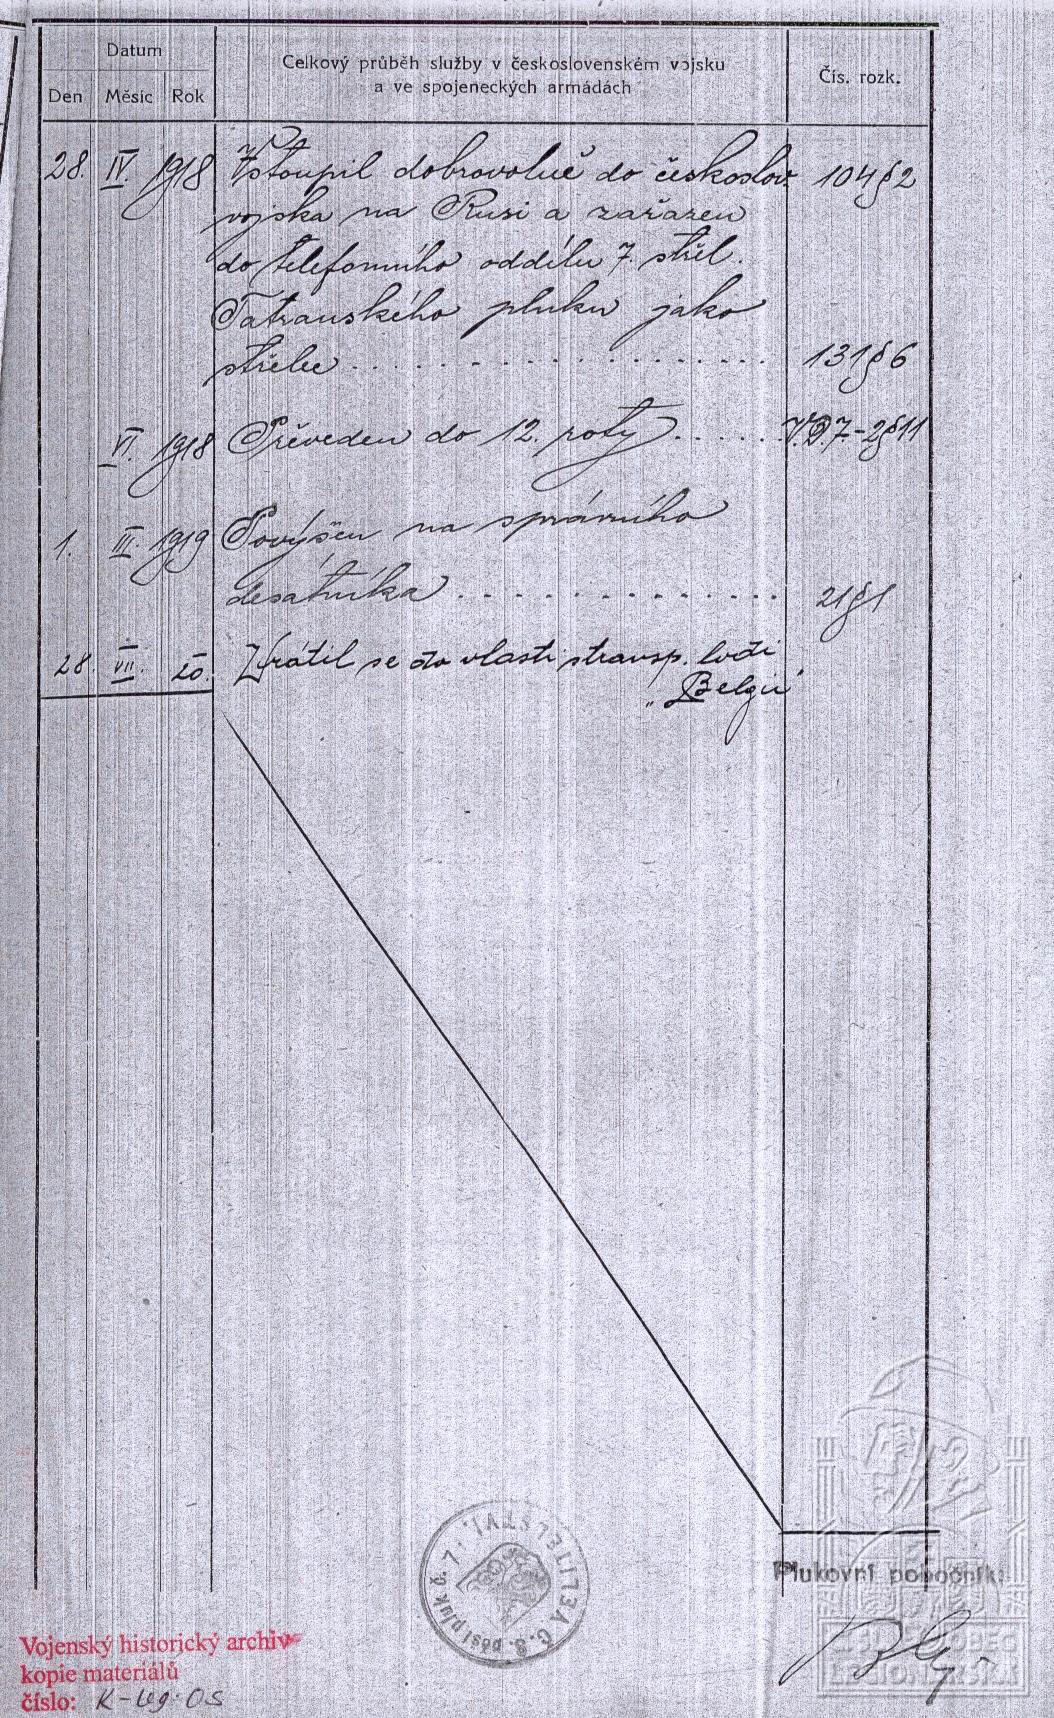 Datum
Den Měsíc Rok
Celkový průběh služby v československém vojsku
a ve spojeneckých armádách
Čís. rozk.
28. IV. 1918 Vstoupil dobrovolně do českoslov. 104§2
vojska na Rusi a zařazen
do telefonního oddílu 7. střel.
Tatranského pluku jako
střelec . . . . . . . . . . . . . . 131§6
VI. 1918 Převeden do 12. roty . . . . . . V.D.7.-2§11
1. III. 1919 Povýšen na správního
desátníka . . . . . . . . . . . . . . 21§1
28. VII. 20. Vrátil se do vlasti transp. lodí
"Belgie"
Plukovní pobočník:
VELITELSTVÍ
Č. S. pěší pluk č. 7.
ČS. OBEC
LEGIONÁŘSKÁ
Vojenský historický archiv
kopie materiálů
číslo: K-leg. OS